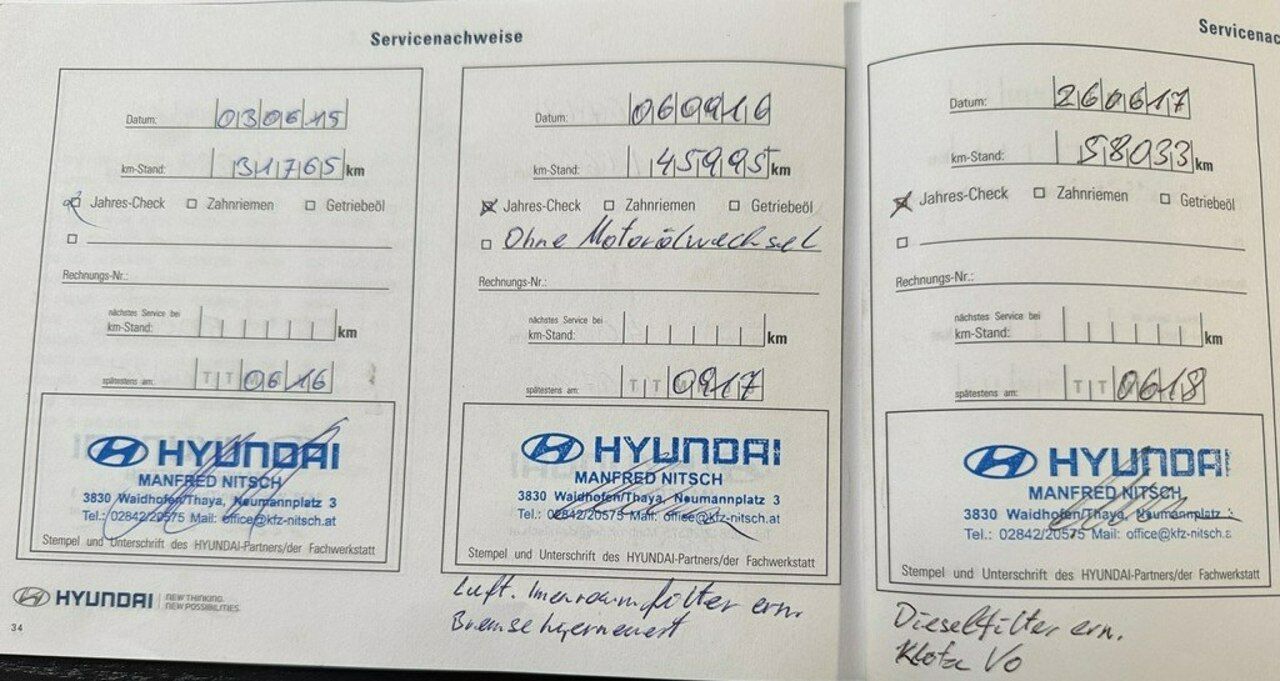 Servicenachweise
Datum: 030615
km-Stand: 31765 km
Jahres-Check Zahnriemen Getriebeöl
Rechnungs-Nr.:
nächstes Service bei
km-Stand: km
spätestens am: T T 0616
HYUNDAI
MANFRED NITSCH
3830 Waidhofen/Thaya, Neumannplatz 3
Tel.: 02842/20575 Mail: office@kfz-nitsch.at
Stempel und Unterschrift des HYUNDAI-Partners/der Fachwerkstatt
HYUNDAI NEW THINKING.
NEW POSSIBILITIES.
34
Datum: 060916
km-Stand: 45995 km
Jahres-Check Zahnriemen Getriebeöl
Ohne Motorölwechsel
Rechnungs-Nr.:
nächstes Service bei
km-Stand: km
spätestens am: T T 0917
HYUNDAI
MANFRED NITSCH
3830 Waidhofen/Thaya, Neumannplatz 3
Tel.: 02842/20575 Mail: office@kfz-nitsch.at
Stempel und Unterschrift des HYUNDAI-Partners/der Fachwerkstatt
Luft. Innenraumfilter ern.
Bremse erneuert
Servicenac
Datum: 260617
km-Stand: 58033 km
Jahres-Check Zahnriemen Getriebeöl
Rechnungs-Nr.:
nächstes Service bei
km-Stand: km
spätestens am: T T 0618
HYUNDAI
MANFRED NITSCH
3830 Waidhofen/Thaya, Neumannplatz 3
Tel.: 02842/20575 Mail: office@kfz-nitsch.a
Stempel und Unterschrift des HYUNDAI-Partners/der Fachwerkstatt
Dieselfilter ern.